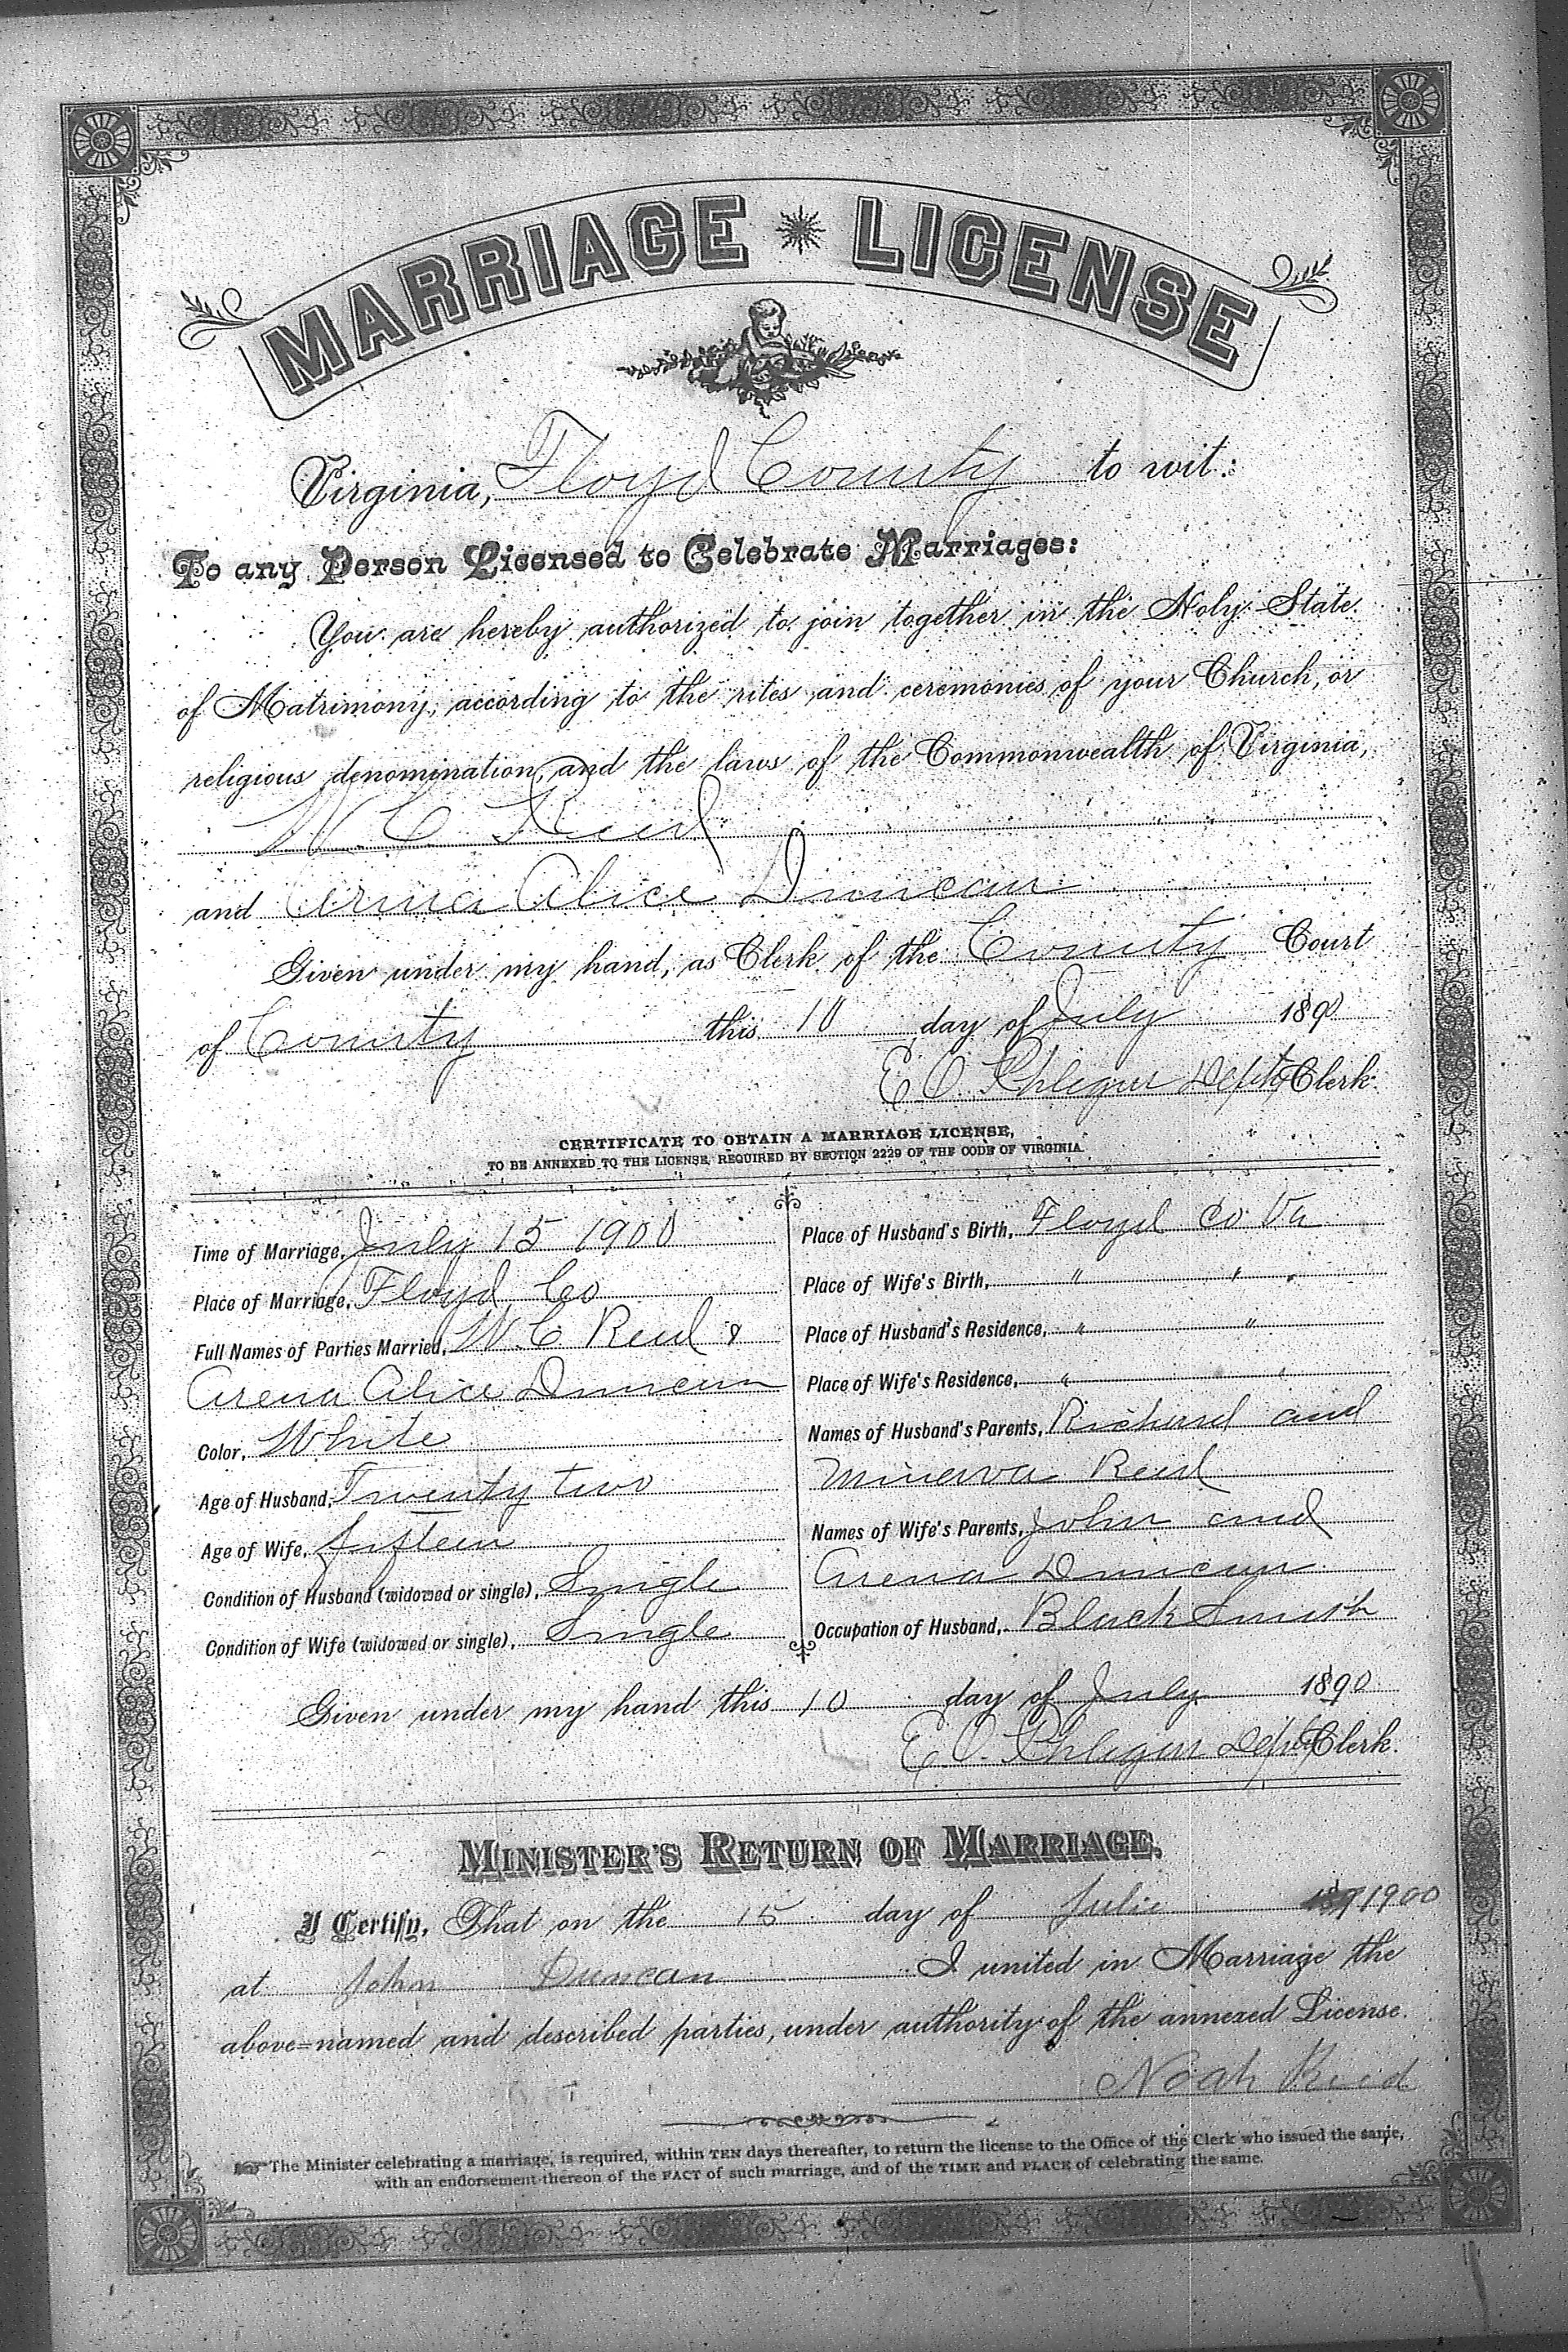 MARRIAGE LICENSE
Virginia, Floyd County to wit:
To any Person Licensed to Celebrate Marriages:
You are hereby authorized to join together in the Holy State
of Matrimony, according to the rites and ceremonies of your Church, or
religious denomination, and the laws of the Commonwealth of Virginia,
W C Reed
and Arena Alice Duncan
Given under my hand, as Clerk of the County Court
of County this 10 day of July 1890
E O Phlegar Depty Clerk.
CERTIFICATE TO OBTAIN A MARRIAGE LICENSE,
TO BE ANNEXED TO THE LICENSE, REQUIRED BY SECTION 2229 OF THE CODE OF VIRGINIA.
Time of Marriage, July 15 1900
Place of Marriage, Floyd Co
Full Names of Parties Married, W. C Reed &
Arena Alice Duncan
Color, White
Age of Husband, Twenty two
Age of Wife, fifteen
Condition of Husband (widowed or single), Single
Condition of Wife (widowed or single), Single
Place of Husband's Birth, Floyd Co Va
Place of Wife's Birth, " "
Place of Husband's Residence, " "
Place of Wife's Residence, " "
Names of Husband's Parents, Richard and
Minerva Reed
Names of Wife's Parents, John and
Arena Duncan
Occupation of Husband, Black Smith
Given under my hand this 10 day of July 1890
E. O. Phlegar Depty Clerk.
MINISTER'S RETURN OF MARRIAGE.
I Certify, That on the 15 day of Julie 1900
at John Duncan I united in Marriage the
above-named and described parties, under authority of the annexed License.
Noah Reed
The Minister celebrating a marriage, is required, within TEN days thereafter, to return the license to the Office of the Clerk who issued the same,
with an endorsement thereon of the FACT of such marriage, and of the TIME and PLACE of celebrating the same.